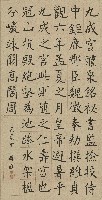 九成宮醴泉銘秘書監撿挍侍
中鉅鹿郡公臣魏徵奉勅撰維貞
觀六年孟夏之月皇帝避暑乎
九成之宮此則隨之仁壽宮也
冠山抗殿絕壑為池跨水架楹
分巖竦闕高閣周